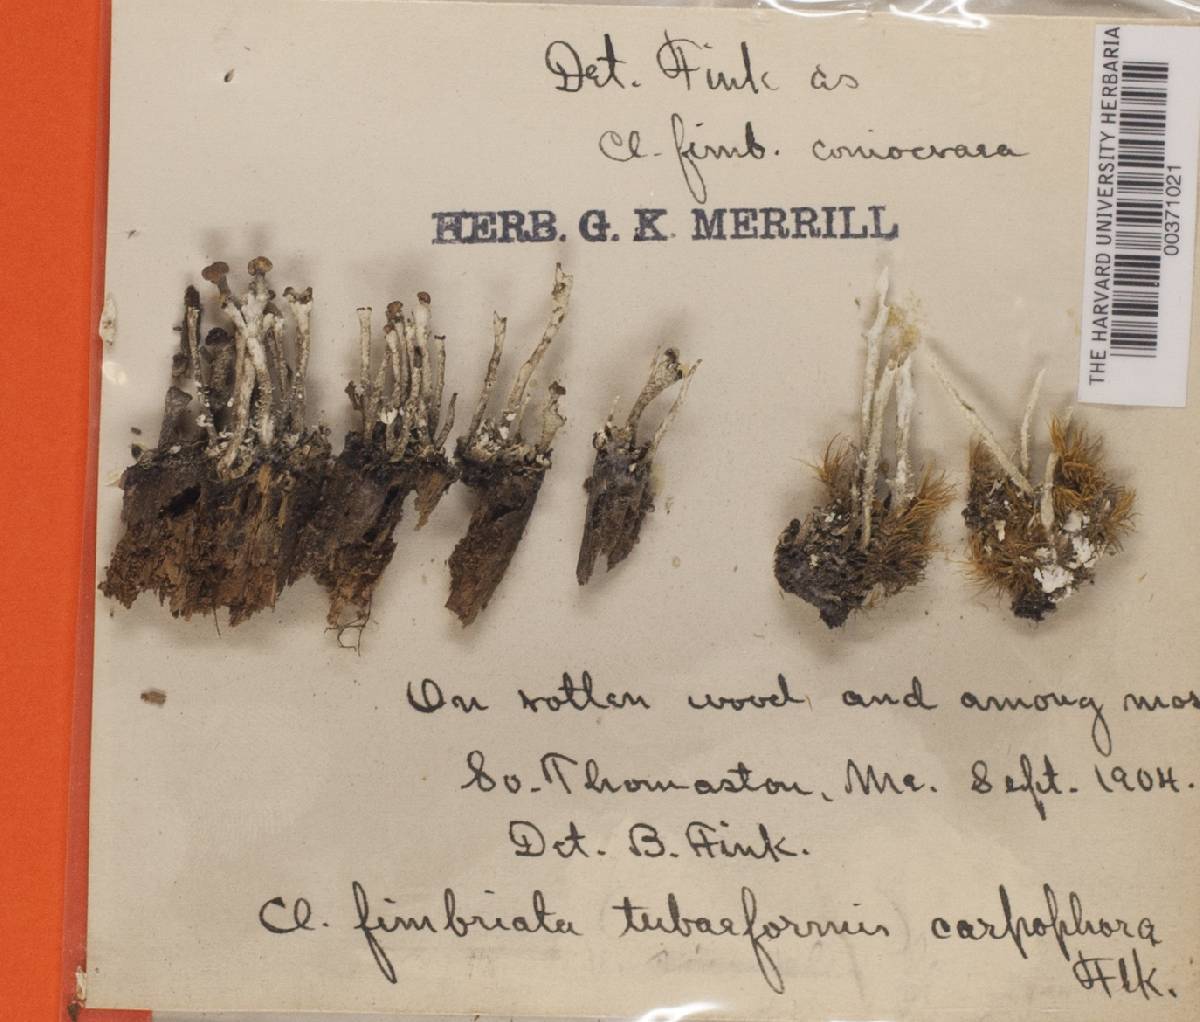 Det. Fink as
Cl. fimb. coniocraea
HERB. G. K. MERRILL
THE HARVARD UNIVERSITY HERBARIA
00371021
On rotten wood and among mos
So. Thomaston, Me. Sept. 1904.
Det. B. Fink.
Cl. fimbriata tubaeformis carpophora
Flk.